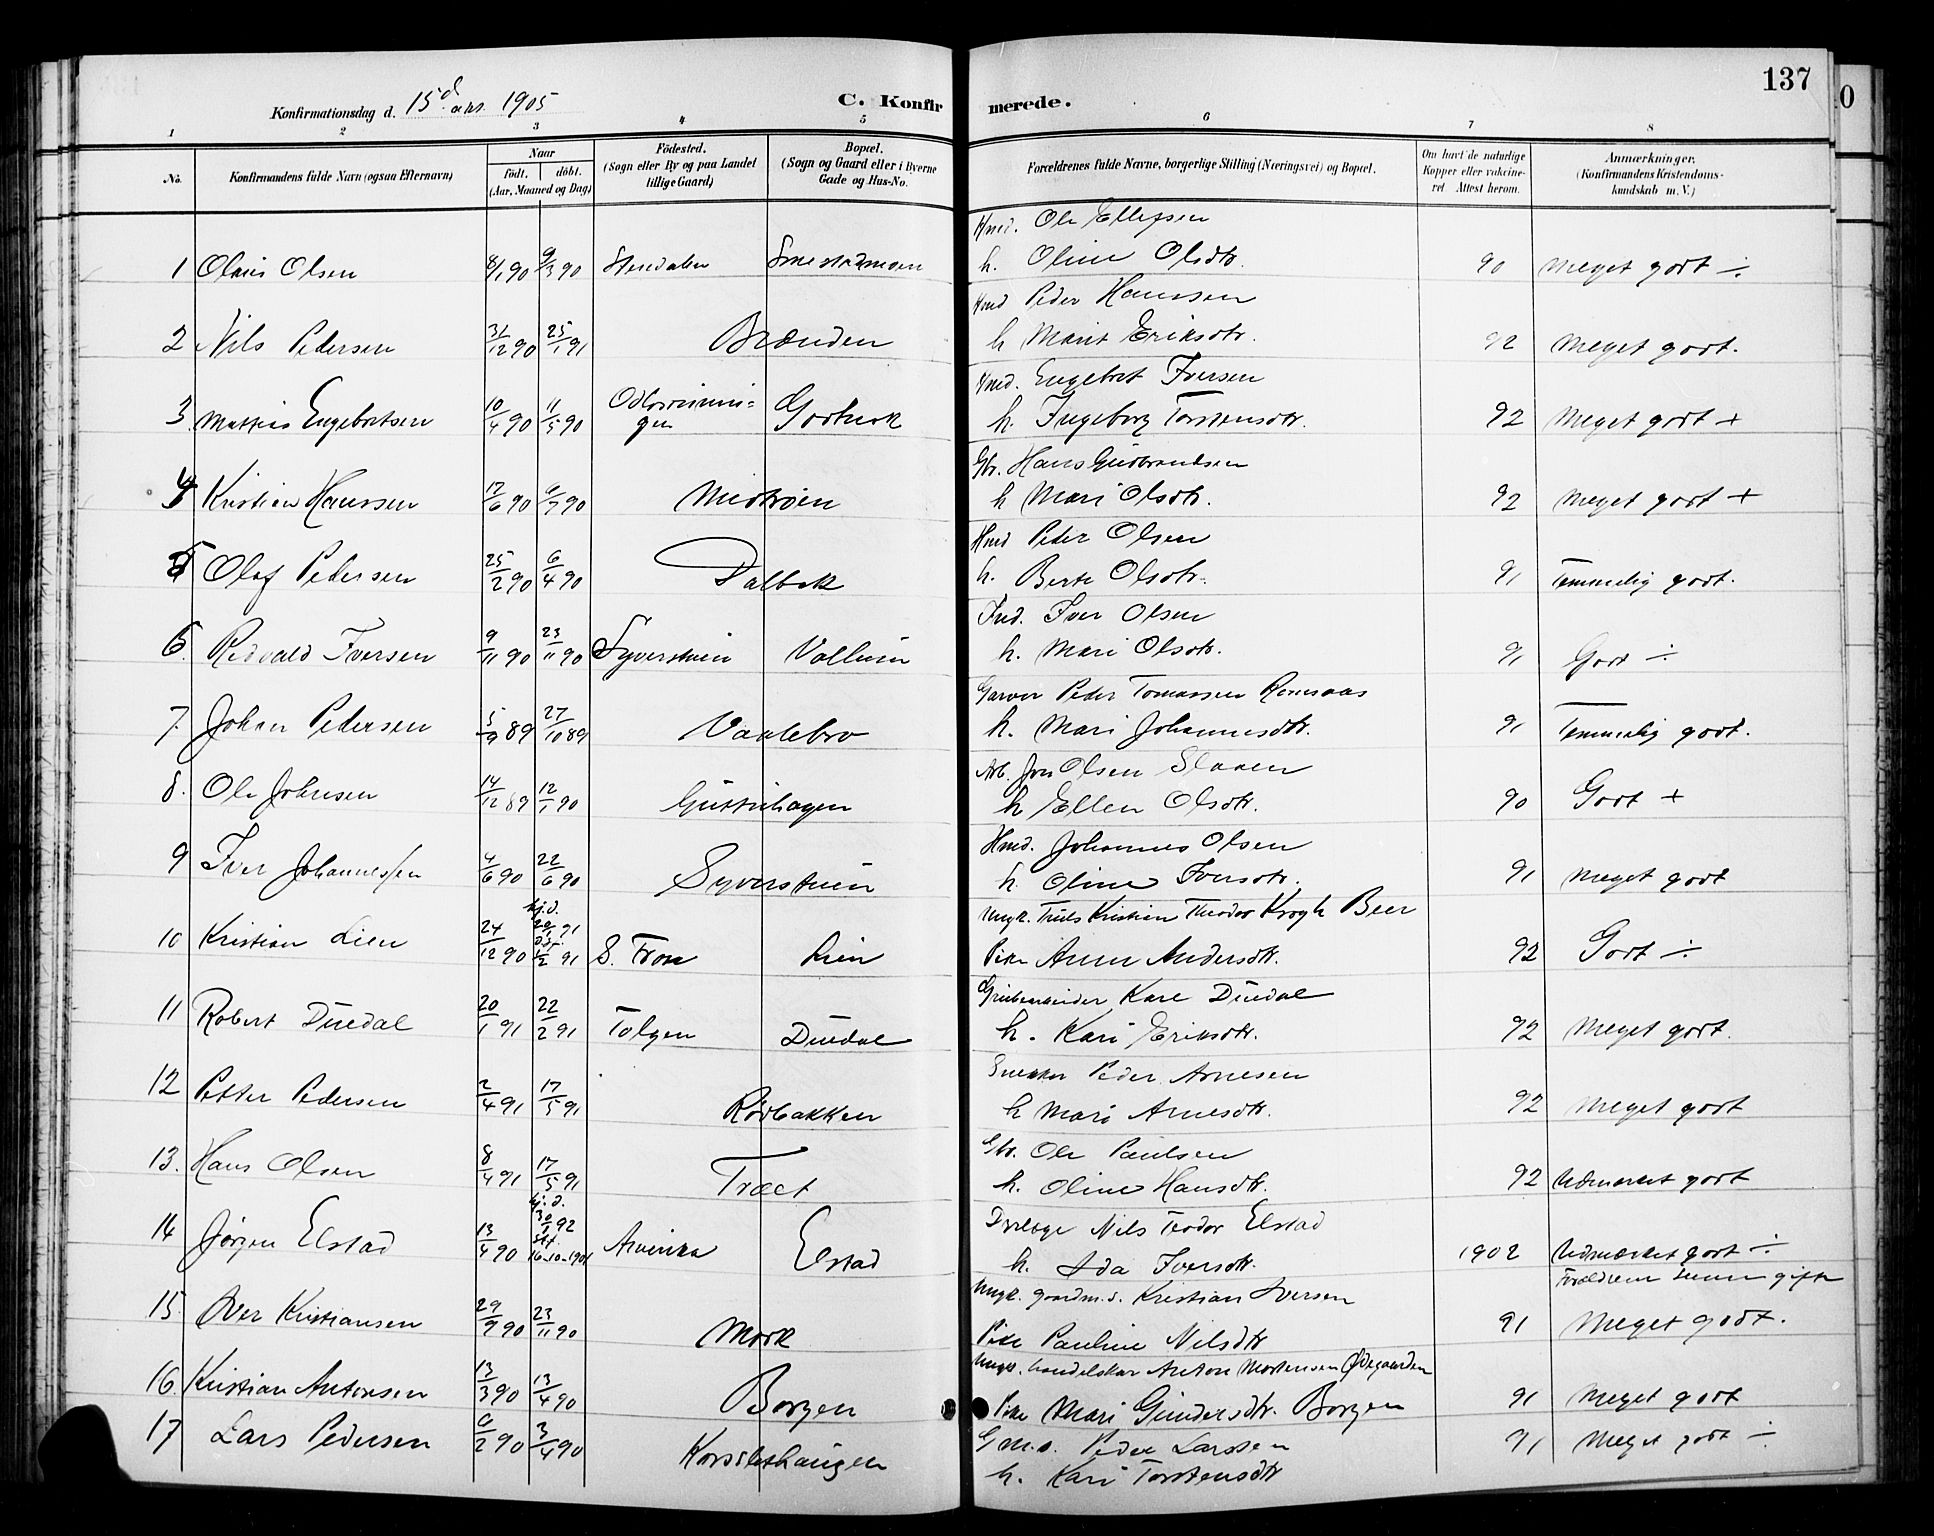 137
0
Konfirmationsdag d. 15d. okt. 1905 C. Konfirmerede.
1 2 3 4 5 6 7 8
No. Konfirmandens fulde Navn (ogsaa Efternavn) Naar födt. döbt. (Aar, Maaned og Dag) Födested. (Sogn eller By og paa Landet tillige Gaard) Bopæl. (Sogn og Gaard eller i Byerne Gade og Hus-No. Forældrenes fulde Navne, borgerlige Stilling (Næringsvei) og Bopæl. Om havt de naturlige Kopper eller vakcineret Attest herom. Anmærkninger. (Konfirmandens Kristendomskundskab m. V.)
Hmd. Ole Ellefsen
1 Olaus Olsen 8/1 90 9/3 90 Stendalen Smestadmoen h. Oline Olsdtr. 90 Meget godt ÷
Hmd Peder Hanssen
2 Nils Pedersen 31/12 90 25/1 91 Brænden h Marit Eriksdtr. 92 Meget godt.
Hmd. Engebret Iversen
3 Mattias Engebretsen 10/4 90 11/5 90 h. Ingeborg Torstensdtr. 92 Meget godt +
Gbr. Hans Gudbrandsen
4 Kristian Hanssen 17/6 90 6/7 90 Midtøien h Mari Olsdtr. 92 Meget godt +
Hmd Peder Olsen
5 Olaf Pedersen 25/2 90 6/4 90 Dalbek h. Berte Olsdtr. 91 Temmelig godt.
Ind. Iver Olsen
6. Redvald Iversen 9/11 90 23/11 90 Syverstuen Vollum h. Mari Olsdtr. 91 Godt ÷
Garver Peder Tomassen Romsaas
7. Johan Pedersen 5/9 89 27/10 89 Vaalebro h. Mari Johannesdtr. 91 Temmelig godt.
Arb. Jon Olsen Slaaen
8. Ole Johnsen 14/12 89 12/1 90 Guttuhagen h Ellen Olsdtr. 90 Godt +
Hmd. Johannes Olsen
9 Iver Johannessen 4/6 90 22/6 90 Syverstuen h. Oline Iversdtr. 91 Meget godt
Ungk. Truls Kristian Theodor Krogh Beer
10 Kristian Lien 24/12 90 hj.d. 91 S. Fron Lien Pike Anne Andersdtr. 92 Godt ÷
Grubearbeider Karl Duedal
11 Robert Duedal 20/1 91 22/2 91 Tolgen Duedal h. Kari Eriksdtr. 92 Meget godt.
Snekker Peder Arnesen
12 Petter Pedersen 2/4 91 17/5 91 Rødbakken h Mari Arnesdtr. 92 Meget godt
Gbr. Ole Paulsen
13. Hans Olsen 8/4 91 17/5 91 Træet h. Oline Hansdtr. 92 Udmerket godt
Dyrlæge Nils Teodor Elstad
14 Jørgen Elstad 13/4 90 hj.d. 30/1 92 16-10-1901 Amerika Elstad h. Ida Iversdtr. 1902 Udmærket godt ÷
Forældrene senere gifte
Ungk. gaardm.s. Kristian Iversen
15. Iver Kristiansen 29/9 90 23/11 90 Mork Pike Pauline Nilsdtr 91 Meget godt.
Ungk. handelskar Anton Mortensen Ødegaarden
16. Kristian Antonsen 13/3 90 13/4 90 Borgen Pike Mari Gundersdtr. Borgen 91 Meget godt
17 Lars Pedersen 6/2 90 3/4 90 Korsslethaugen Gm.s. Peder Larssen 91 Meget godt ÷
h. Kari Torstensdtr